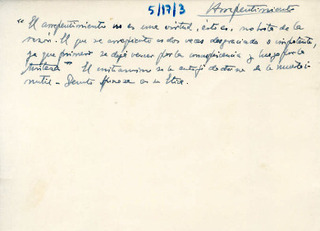 5/17/3 Arrepentimiento
"El arrepentimiento no es una virtud, esto es, no brota de la
razón. El que se arrepiente es dos veces desgraciado o impotente,
ya que primero se dejó vencer por la concupiscencia y luego por la
tristeza" El cristianismo es la
inútil. Benito en su Ética.